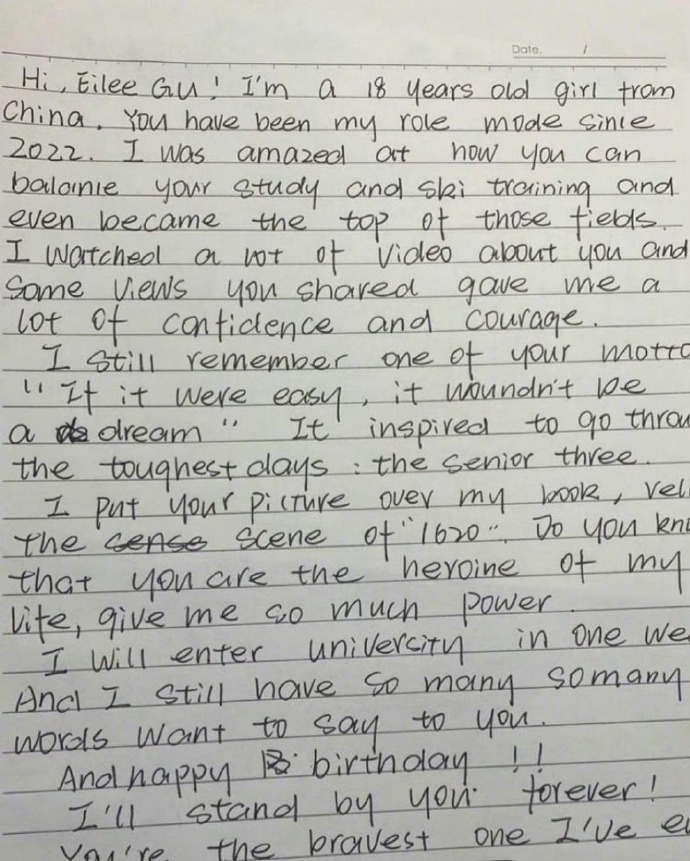 Date. /
Hi, Eilee Gu! I'm a 18 years old girl from
China. You have been my role mode since
2022. I was amazed at how you can
balanie your study and ski training and
even became the top of those fields.
I watched a lot of video about you and
some views you shared gave me a
lot of confidence and courage.
I still remember one of your motto
"If it were easy, it woundn't be
a dream" It inspired to go throu
the toughest days: the senior three.
I put your picture over my book, rel
the scene of "1620". Do you kn
that you are the heroine of my
life, give me so much power.
I will enter univercity in one we
And I still have so many somany
words want to say to you.
And happy birthday !!
I'll stand by you forever!
You're the bravest one I've e